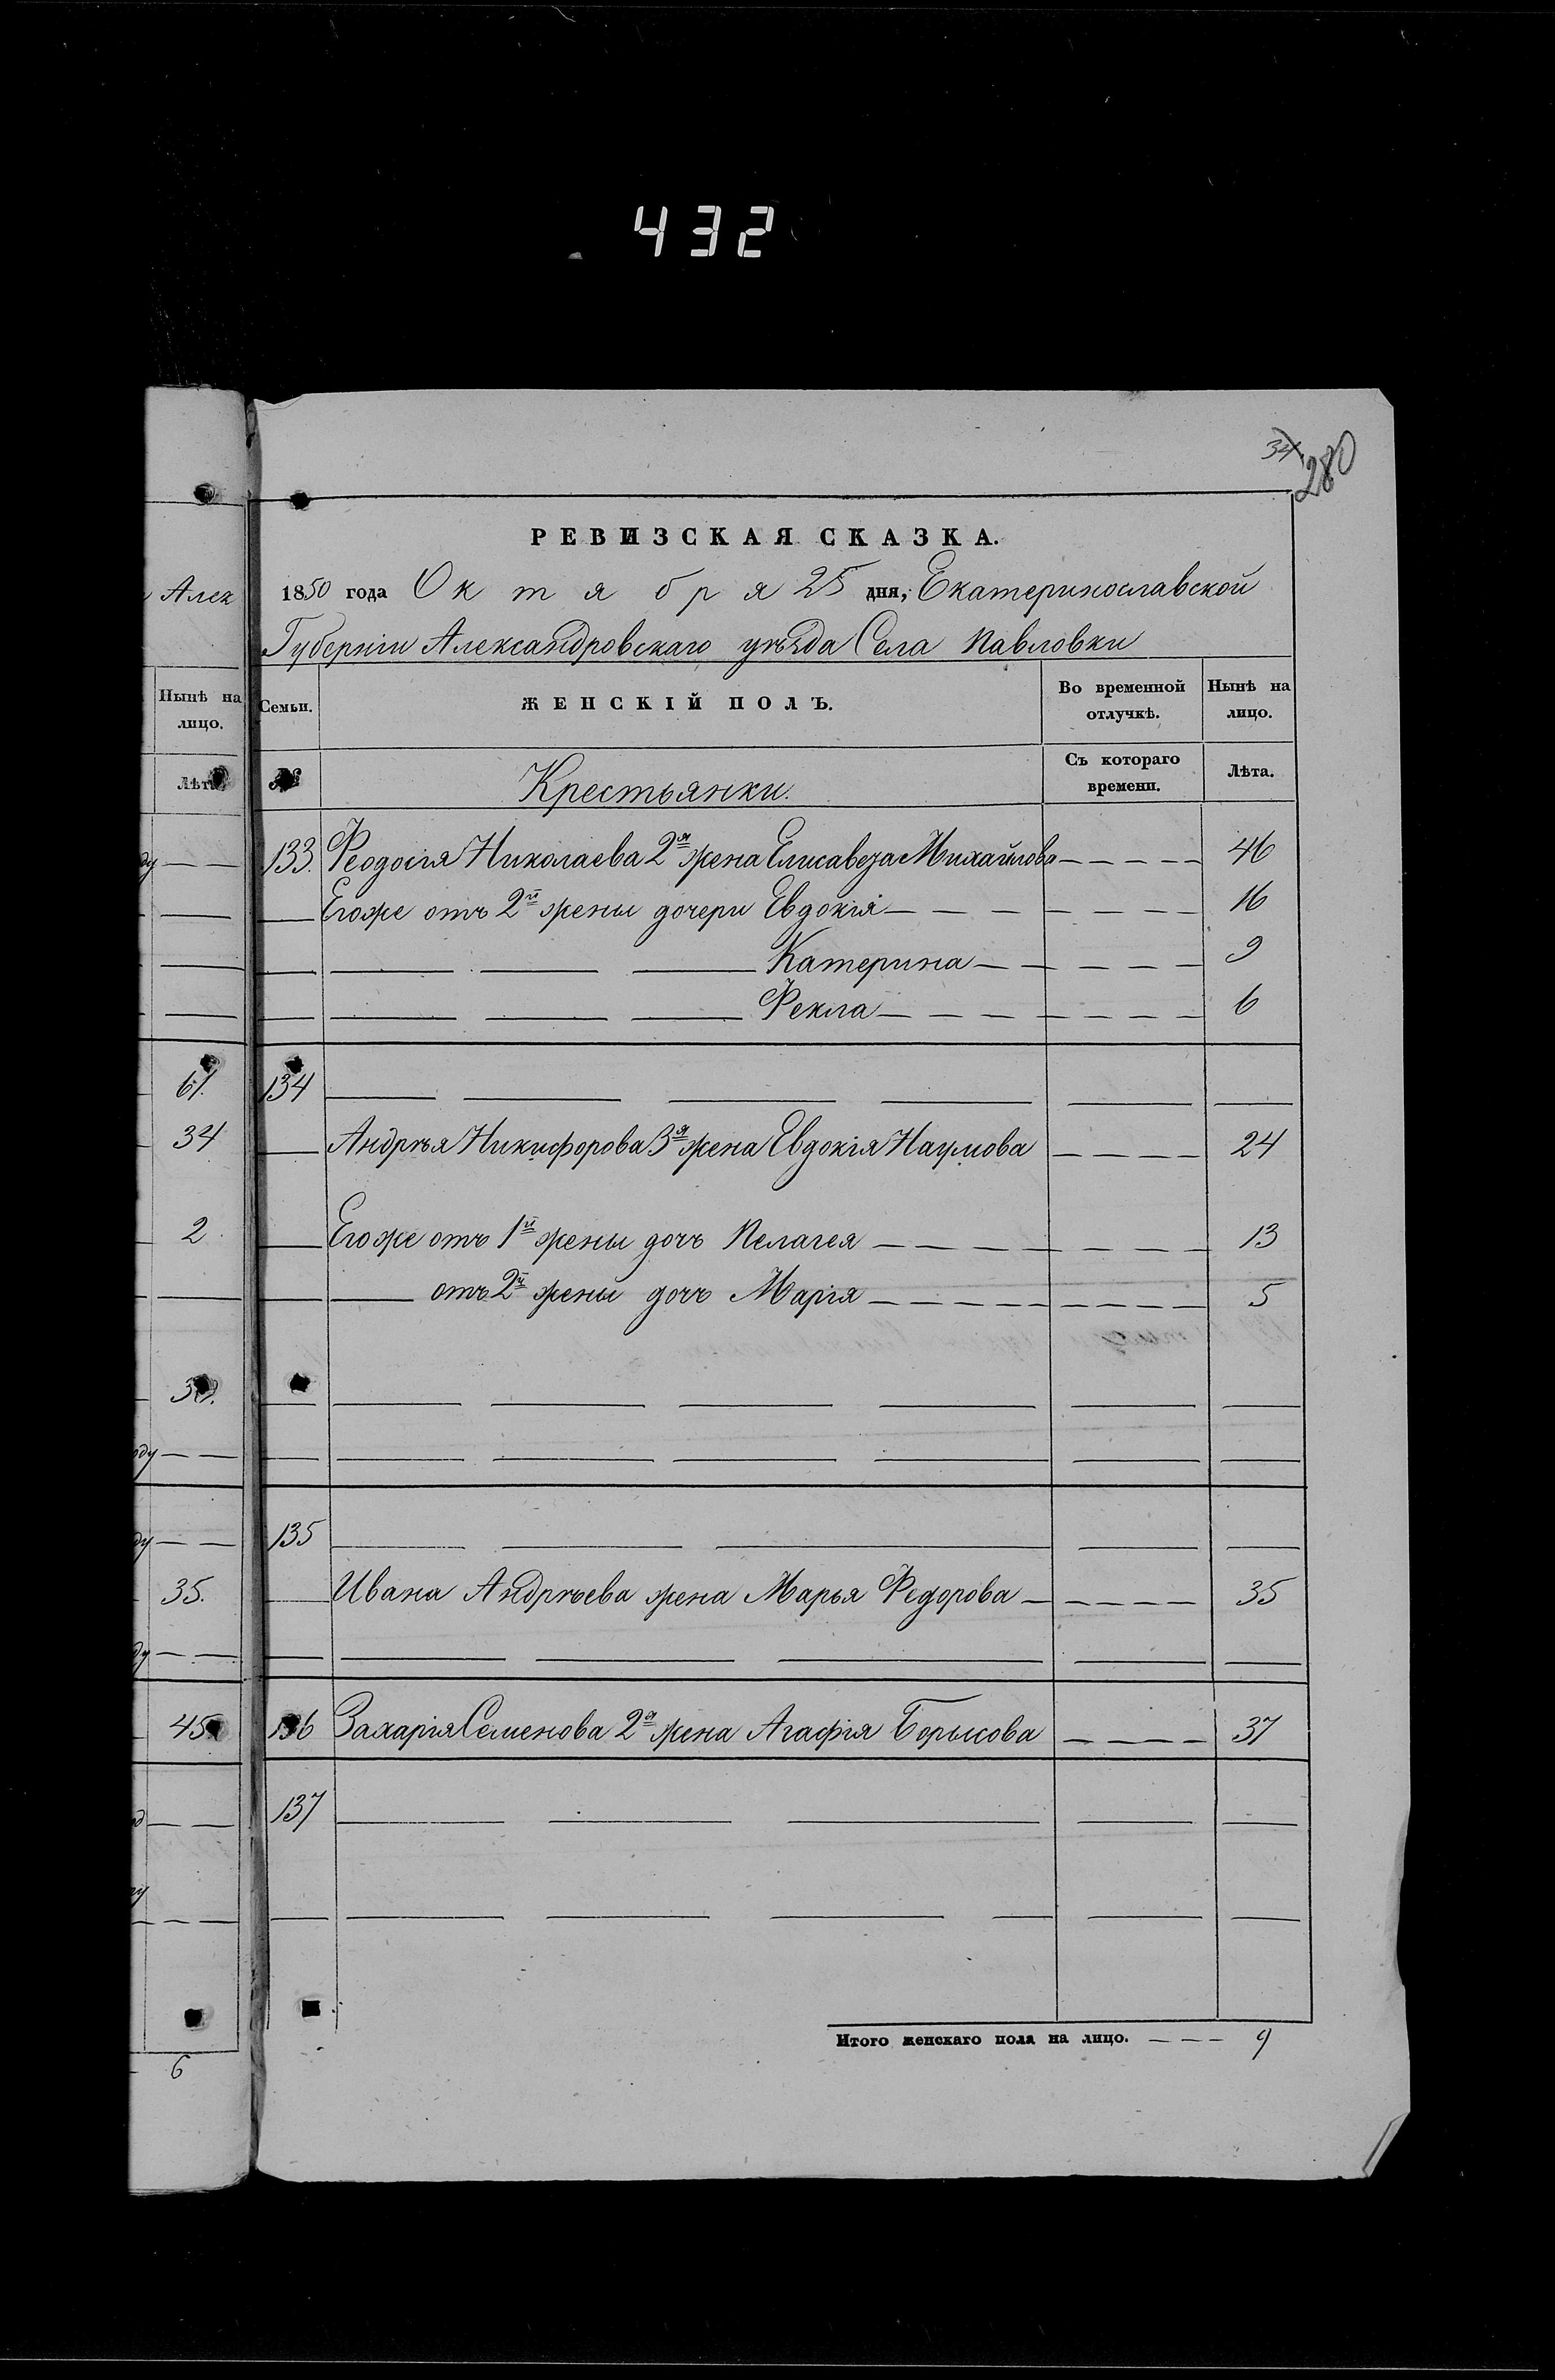 432
34
280
РЕВИЗСКАЯ СКАЗКА.
1850 года Октября 25 дня, Екатеринославской
Губерніи Александровскаго уѣзда Села Павловки
Семьи. ЖЕНСКІЙ ПОЛЪ. Во временной отлучкѣ. Нынѣ на лицо.
№ Крестьянки. Съ котораго времени. Лѣта.
133. Феодосія Николаева 2я жена Елисавеѳа Михайлова 46
Егоже отъ 2й жены дочери Евдокія 16
Катерина 9
Фекла 6
134
Андрѣя Никифорова 3я жена Евдокія Наумова 24
Егоже отъ 1й жены дочь Пелагея 13
отъ 2й жены дочь Марія 5
135
Ивана Андрѣева жена Марья Федорова 35
136 Захарія Семенова 2я жена Агафія Борысова 37
137
Итого женскаго пола на лицо. 9
Алек
Нынѣ на
лицо.
Лѣта.
ду
61.
34
2
30.
оду
ду
35.
ду
45
6